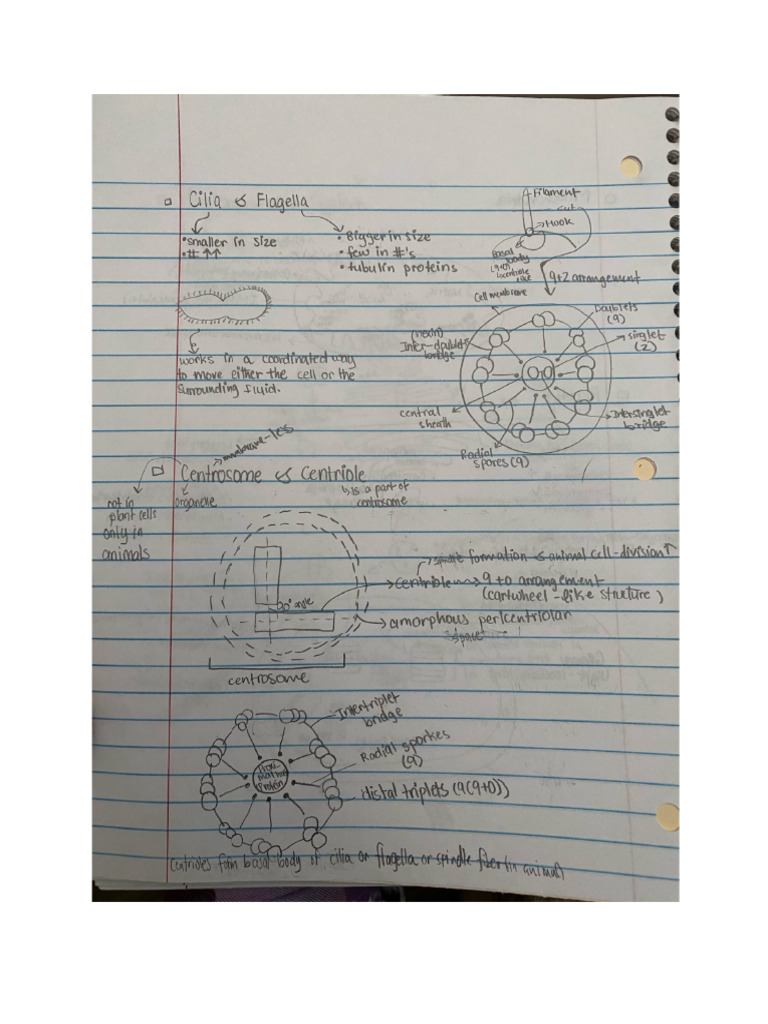 Cilia & Flagella
• smaller in size
• # ↑↑
• Bigger in size
• few in #'s
• tubulin proteins
works in a coordinated way
to move either the cell or the
surrounding fluid.
Filament
cut
Hook
Basal
body
(9+0)
centriole
like
9+2 arrangement
Cell membrane
Doublets
(9)
(nexin)
Inter-doublet
bridge
singlet
(2)
central
sheath
Intersinglet
bridge
Radial
spores (9)
membrane-les
Centrosome & Centriole
not in
plant cells
only in
animals
organelle
is a part of
centrosome
90° angle
spindle formation & animal cell-division ↑
centriole → 9+0 arrangement
(cartwheel-like structure)
amorphous pericentriolar
space
centrosome
Intertriplet
bridge
Radial sporkes
(9)
distal triplets (9(9+0))
Protein
centrioles form basal body of cilia or flagella or spindle fiber (in animal)